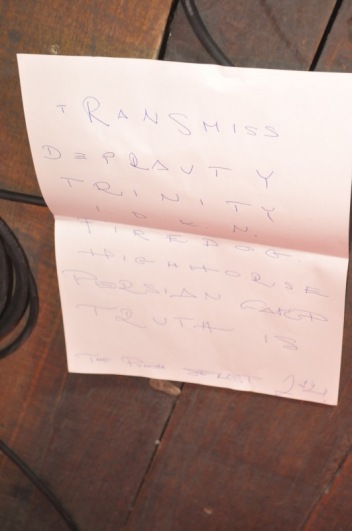 TRANSMISS
DEPRAVTY
TRINITY
I.O.U.N.
FIREDOG.
HIGHHORSE
PERSIAN
TRUTH IS
THE